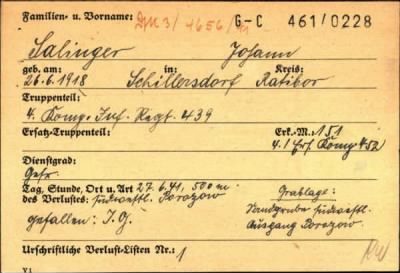 Familien- u. Vorname: G-C 461/0228
Salinger Johann
geb. am: in: Kreis:
26.6.1918 Schillersdorf Ratibor
Truppenteil:
4. Komp. Inf. Regt. 439
Ersatz-Truppenteil: Erk.-M.: 151
4./Ers. Komp. 452
Dienstgrad:
Gefr.
Tag, Stunde, Ort u. Art 27.6.41, 500 m
des Verlustes: südwestl. Porozow Grablage:
gefallen: I.G. Sandgrube südwestl.
Ausgang Porozow.
Urschriftliche Verlust-Listen Nr.: 1
VI